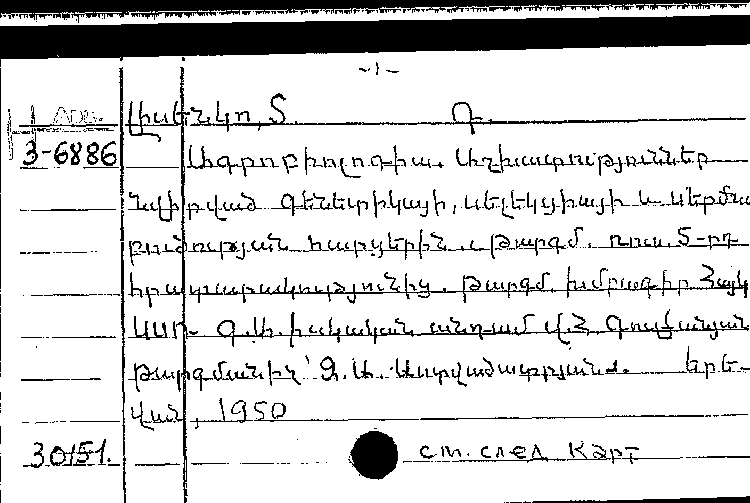 -1-
Լիսենկո, Տ. Դ.
3-6886 Ագրոբիոլոգիա. Աշխատություններ
նվիրված գենետիկայի, սելեկցիայի և սերմնա
բուծության հարցերին. Թարգմ. ռուս. 5-րդ
հրատարակությունից. Թարգմ. խմբագիր Հայկ
ՍՍՌ Գ.Ա. իսկական անդամ Վ.Հ. Գուլքանյան
Թարգմանիչ՝ Զ.Ա. Աստվածատրյան. Երե-
վան, 1950
30151. ст. след карт